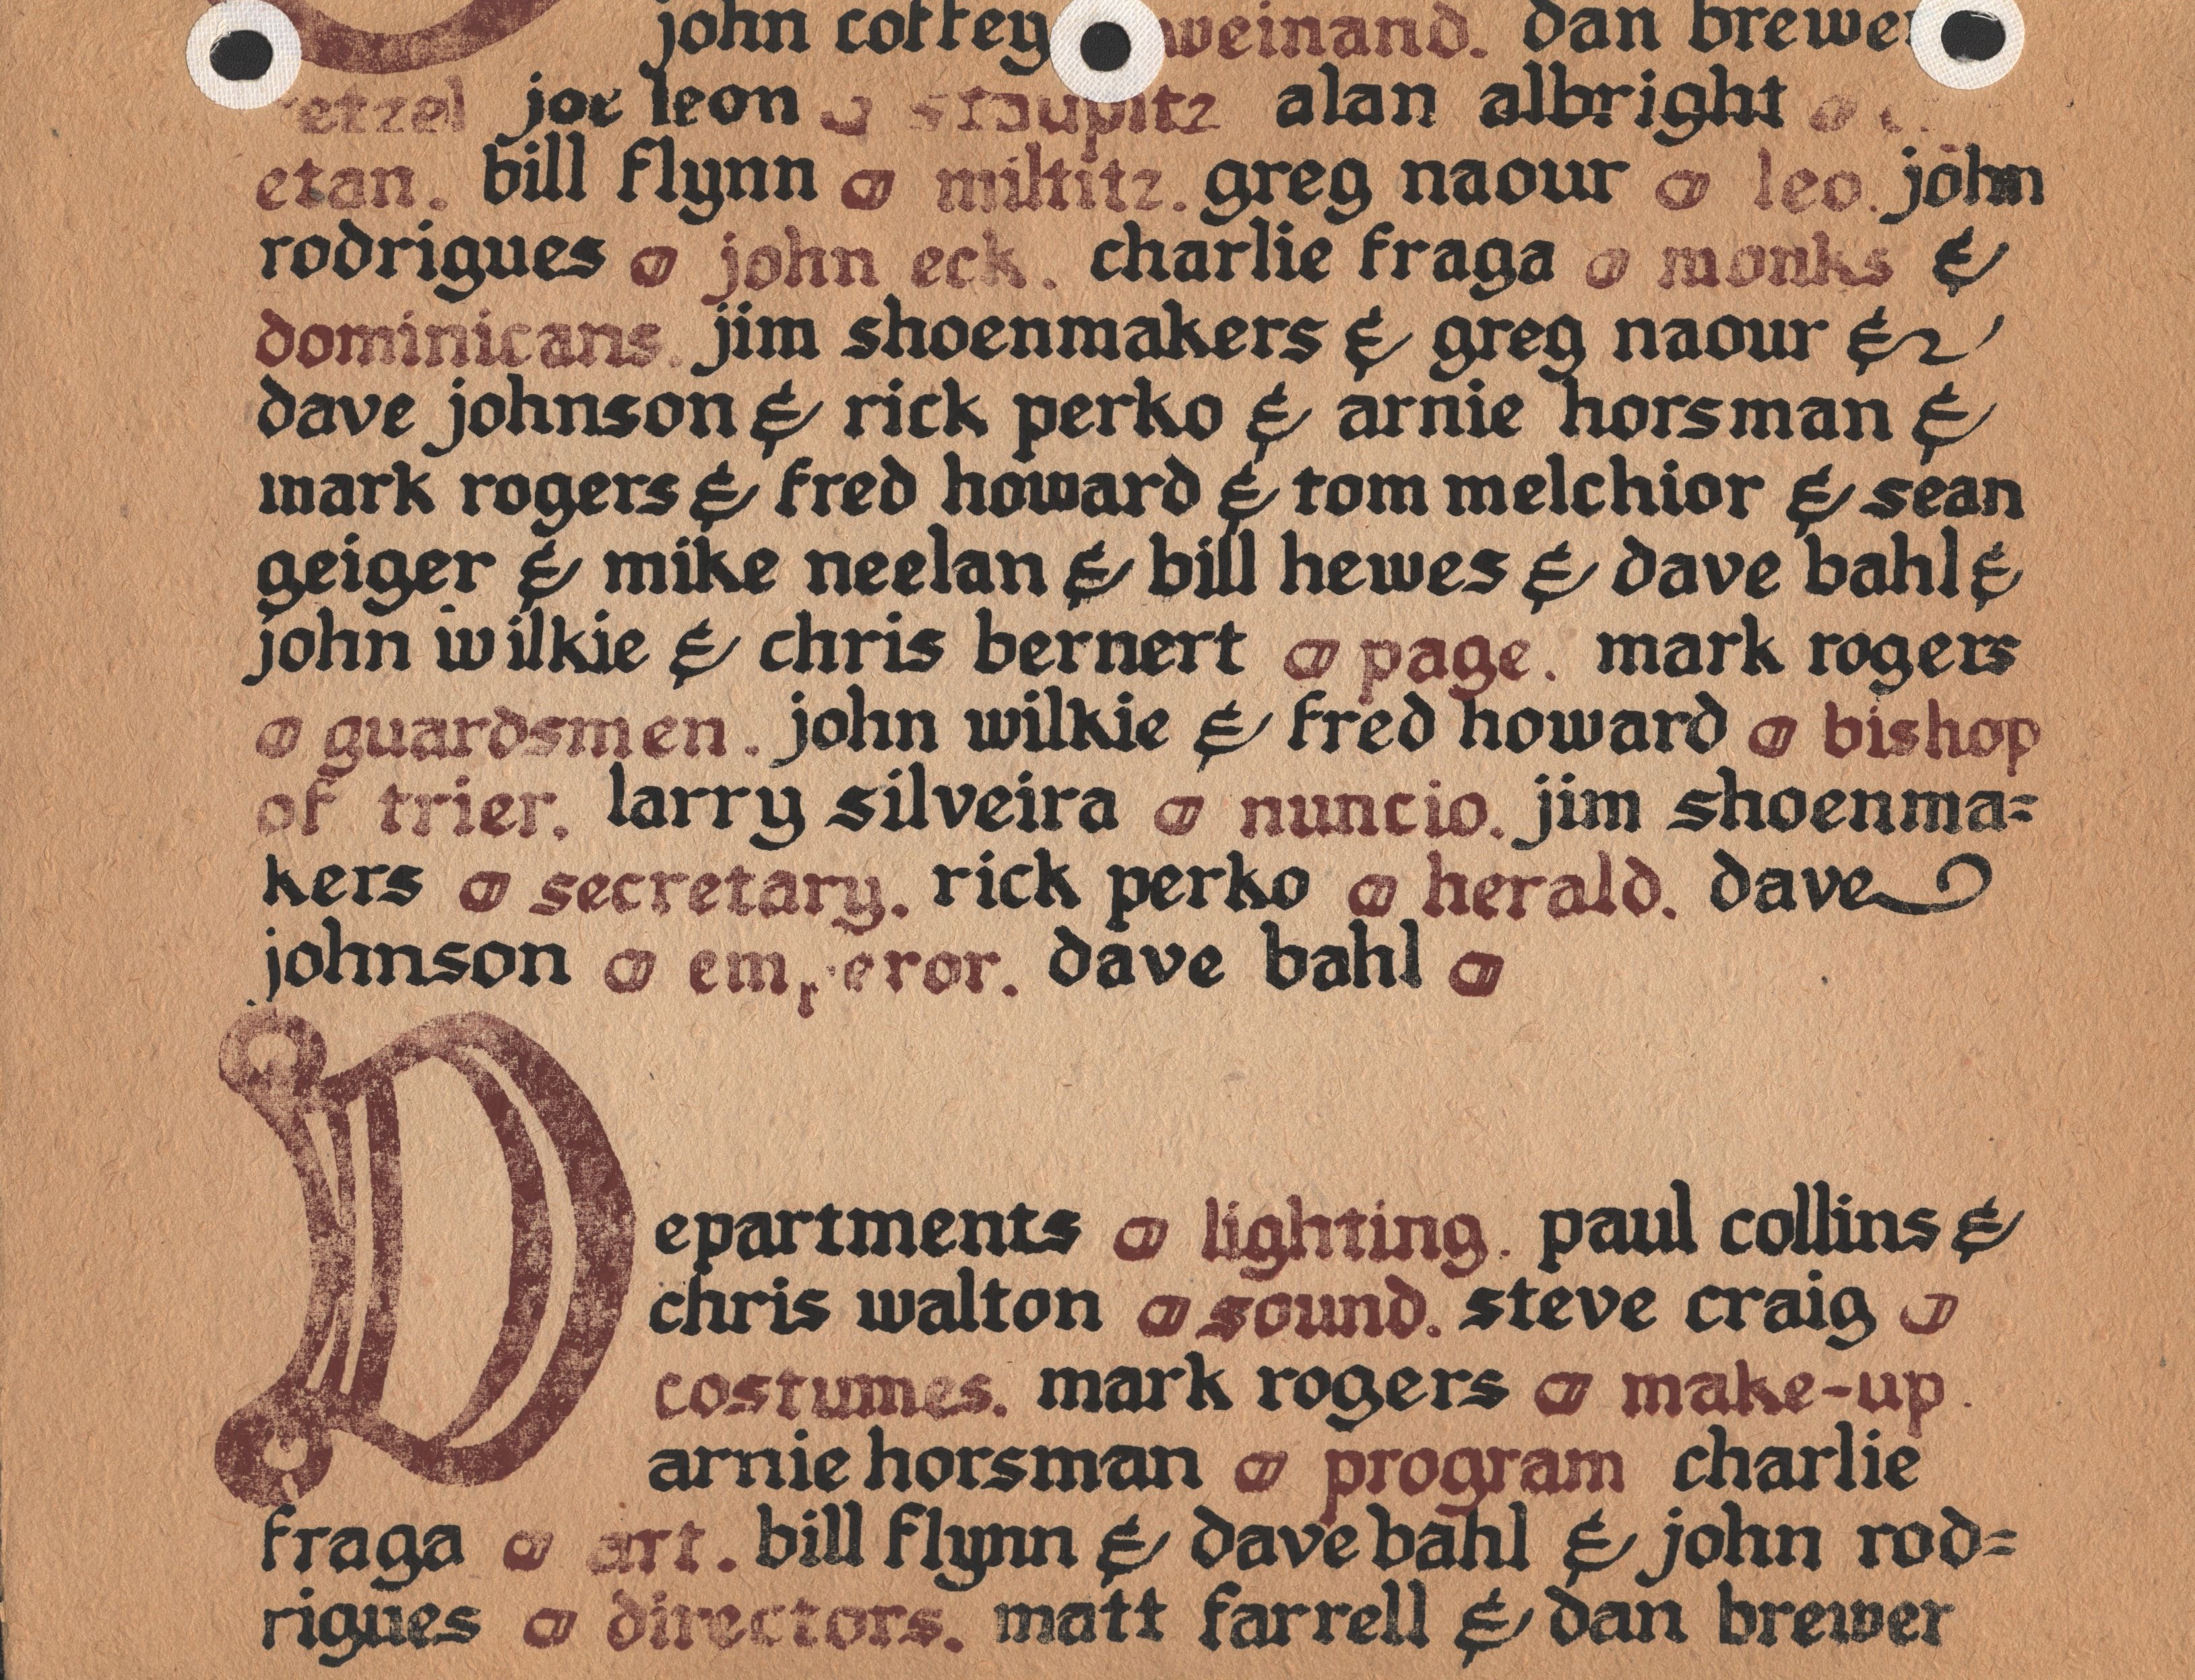 john coffey weinand. dan brewer
etzel joe leon staupitz alan albright
etan. bill flynn miltitz. greg naour leo. john
rodrigues john eck. charlie fraga monks &
dominicans. jim shoenmakers & greg naour &
dave johnson & rick perko & arnie horsman &
mark rogers & fred howard & tom melchior & sean
geiger & mike neelan & bill hewes & dave bahl &
john wilkie & chris bernert page. mark rogers
guardsmen. john wilkie & fred howard bishop
of trier. larry silveira nuncio. jim shoenma=
kers secretary. rick perko herald. dave
johnson emperor. dave bahl
Departments lighting. paul collins &
chris walton sound. steve craig
costumes. mark rogers make-up.
arnie horsman program charlie
fraga art. bill flynn & dave bahl & john rod=
rigues directors. matt farrell & dan brewer